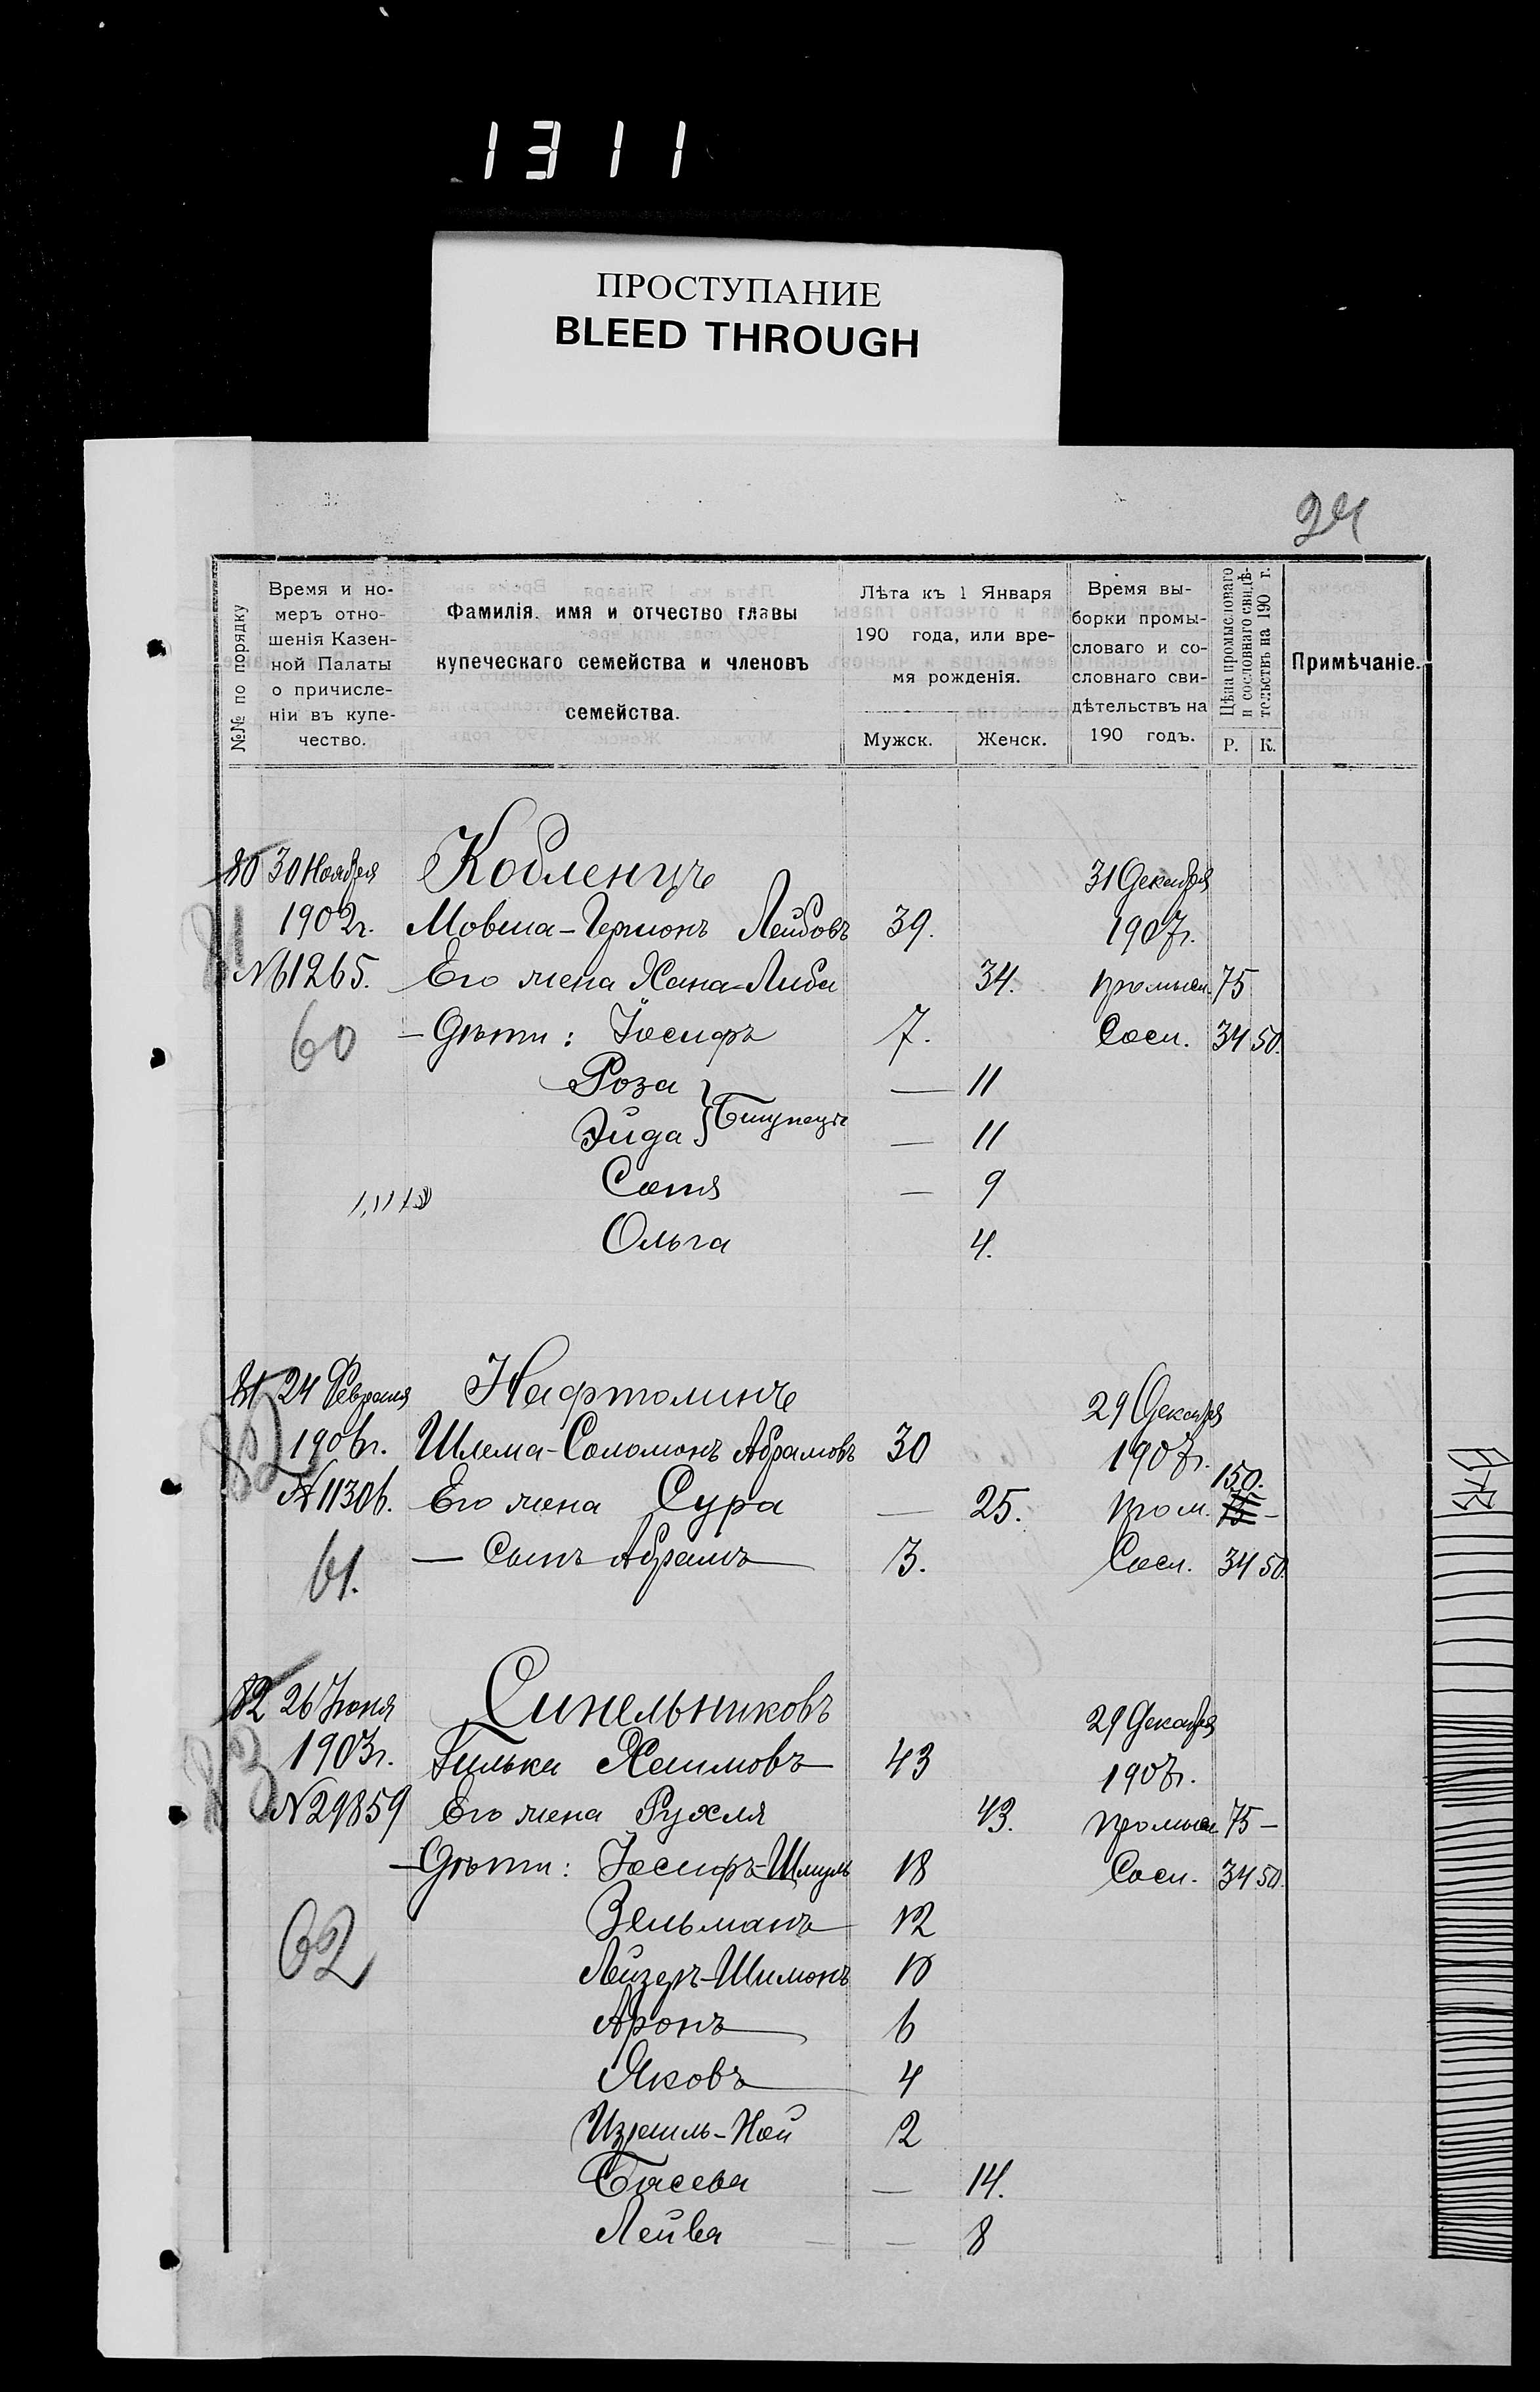 1311
ПРОСТУПАНИЕ
BLEED THROUGH
24
№№ по порядку
Время и но-
меръ отно-
шенія Казен-
ной Палаты
о причисле-
ніи въ купе-
чество.
Фамилія. имя и отчество главы
купеческаго семейства и членовъ
семейства.
Лѣта къ 1 Января
190 года, или вре-
мя рожденія.
Мужск. Женск.
Время вы-
борки промы-
словаго и со-
словнаго сви-
дѣтельствъ на
190 годъ.
Цѣна промысловаго
и сословнаго свидѣ-
тельствъ на 190 г.
Р. К.
Примѣчаніе.
80 30 Ноября Кобленцъ 31 Декабря
81 1902г. Мовша-Гершонъ Лейбовъ 39. 1907г.
№61265. Его жена Хана-Либа 34. промысл. 75
60 — Дѣти: Іосифъ 7. Сосл. 34 50.
Роза — 11
Эйда } Близнецы — 11
Соня — 9
Ольга 4.
81 24 Февраля Нафтолинъ 29 Декабря
82 1906г. Шлема-Соломонъ Абрамовъ 30 1907г. 150.
№ 11306. Его жена Сура — 25. пром. 75 —
61. — Сынъ Абрамъ 3. Сосл. 34 50.
82 26 Іюня Синельниковъ 29 Декабря
83 1903г. Гилька Хаимовъ 43 1907г.
№29859 Его жена Рухля 43. промысл. 75 —
— Дѣти: Іосифъ-Шмуль 18 Сосл. 34 50.
62 Зельманъ 12
Лейзеръ-Шимонъ 10
Аронъ 6
Яковъ 4
Израиль-Ной 2
Басева — 14.
Лейва — 8